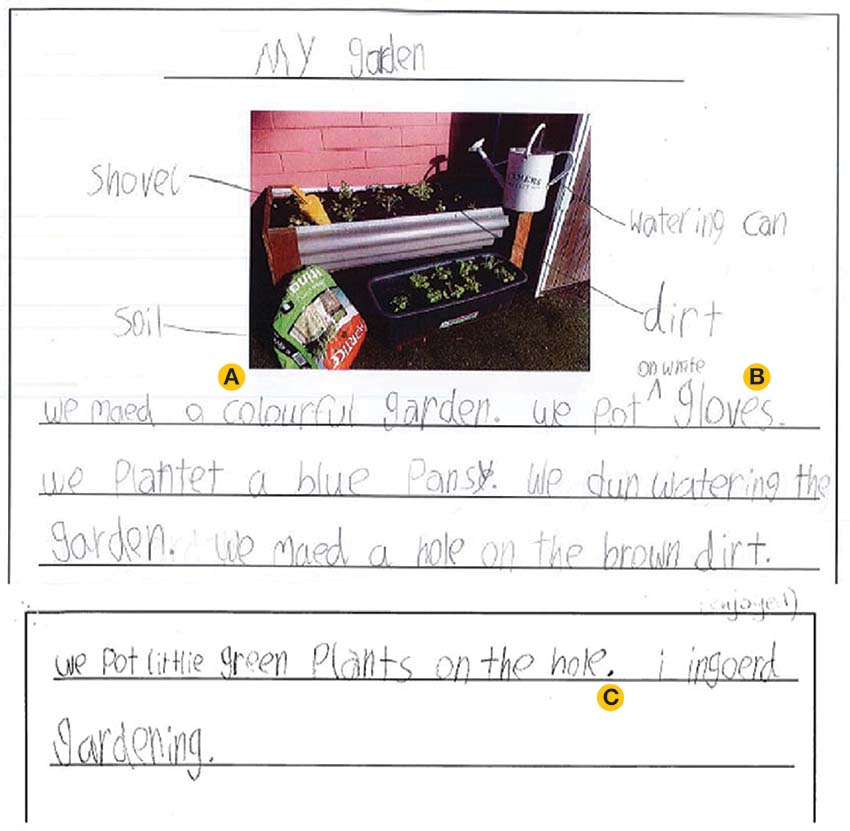 My garden
shovel
watering can
soil
dirt
A
on white
B
we maed a colourful garden. we pot ^ gloves.
we plantet a blue Pansy. We dun watering the
garden. We maed a hole on the brown dirt.
enjoyed)
we pot little green Plants on the hole. i ingoerd
C
gardening.